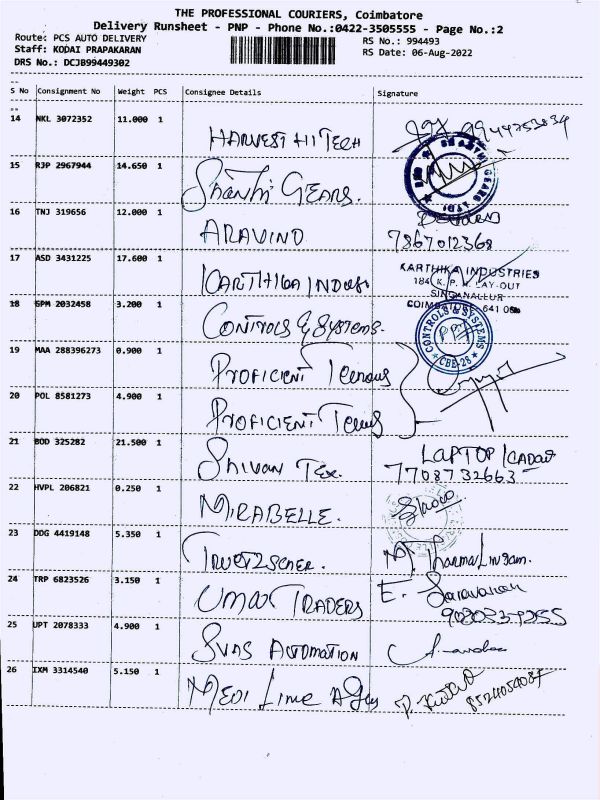 THE PROFESSIONAL COURIERS, Coimbatore
Delivery Runsheet - PNP - Phone No.:0422-3505555 - Page No.:2
Route: PCS AUTO DELIVERY
RS No.: 994493
Staff: KODAI PRAPAKARAN
RS Date: 06-Aug-2022
DRS No.: DCJB99449302
S No Consignment No Weight PCS Consignee Details Signature
14 NKL 3072352 11.000 1 HARVEST HI TECH
15 RJP 2967944 14.650 1 Shanthi GEARS.
16 TNJ 319656 12.000 1 ARAVIND
7867012368
17 ASD 3431225 17.600 1 KARTHIKA INDUS
KARTHIKA INDUSTRIES
184 K. P. R. LAY-OUT
SINGANALLUR
18 SPM 2032458 3.200 1 CONTROLS & SYSTEMS.
CONTROLS & SYSTEMS
CBE-28
19 MAA 288396273 0.900 1 PROFICIENT
20 POL 8581273 4.900 1 PROFICIENT
21 BOD 325282 21.500 1 SHIVAN TEX.
LAPTOP
7708732663
22 HVPL 206821 0.250 1 MIRABELLE.
23 DDG 4419148 5.350 1
M. Tharmalingam.
24 TRP 6823526 3.150 1 UMAA TRADERS
E. Saravanan
25 UPT 2078333 4.900 1 SVAS AUTOMATION
26 IXM 3314540 5.150 1 MEDI Lime